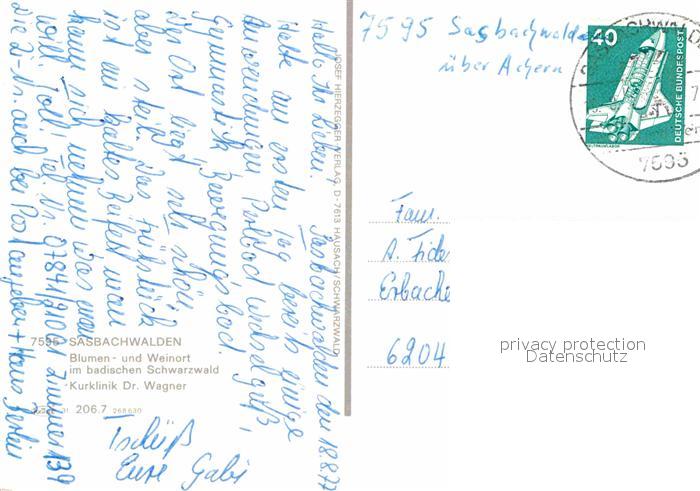 7595 Sasbachwalden
über Achern
40
DEUTSCHE BUNDESPOST
7593
Sasbachwalden den 18.8.77
Hallo Ihr Lieben.
Habe am ersten Tag bereits einige
Anwendungen
Gymnastik, Bewegungsbad.
Der Ort liegt sehr schön
aber steil. Das Frühstück
ist ein kaltes Büfett man
kann sich nehmen was man
will. Toll! Tel. Nr. 07841/91001 Zimmer 139
Die Z-Nr. auch bei Post angeben + Haus Berlin
Tschüß
Eure Gabi
JOSEF HIERZEGGER VERLAG, D-7613 HAUSACH/SCHWARZWALD
7595 SASBACHWALDEN
Blumen- und Weinort
im badischen Schwarzwald
Kurklinik Dr. Wagner
206.7 268630
Fam.
A.
6204
privacy protection
Datenschutz